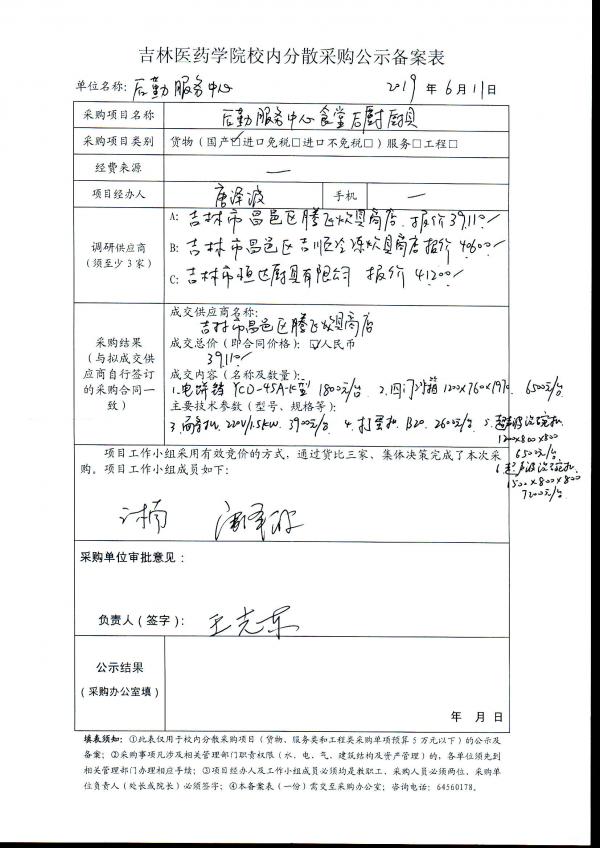 吉林医药学院校内分散采购公示备案表
单位名称：后勤服务中心 2019 年 6 月 11 日
采购项目名称 后勤服务中心食堂后厨厨具
采购项目类别 货物（国产☑进口免税□进口不免税□）服务□工程□
经费来源 —
项目经办人 唐泽波 手机 —
调研供应商
（须至少3家）
A: 吉林市昌邑区腾飞炊具商店 报价39110/
B: 吉林市昌邑区吉顺冷冻炊具商店报价 40600/
C: 吉林市恒达厨具有限公司 报价 41200/
采购结果
（与拟成交供
应商自行签订
的采购合同一
致）
成交供应商名称：
吉林市昌邑区腾飞炊具商店
成交总价（即合同价格）：☑人民币
39110/
成交内容（名称及数量）：
1.电饼铛 YCD-45A-K型 1800元/台 2.四门冰箱1200×760×1970 6500元/台
主要技术参数（型号、规格等）：
3.和面机 220V/1.5KW 3900元/台 4.打蛋机 B20 2600元/台 5.超声波洗碗机
1200×800×800
6500元/台
6.超声波洗碗机
1500×800×800
7200元/台
项目工作小组采用有效竞价的方式，通过货比三家、集体决策完成了本次采
购。项目工作小组成员如下：
唐泽波
采购单位审批意见：
负责人（签字）： 王光东
公示结果
（采购办公室填）
年 月 日
填表须知：①此表仅用于校内分散采购项目（货物、服务类和工程类采购单项预算5万元以下）的公示及
备案；②采购事项凡涉及相关管理部门职责权限（水、电、气、建筑结构及资产管理）的，各单位须先到
相关管理部门办理相应手续；③项目经办人及工作小组成员必须均是教职工，采购人员必须两位，采购单
位负责人（处长或院长）必须签字；④本备案表（一份）需交至采购办公室；咨询电话：64560178。